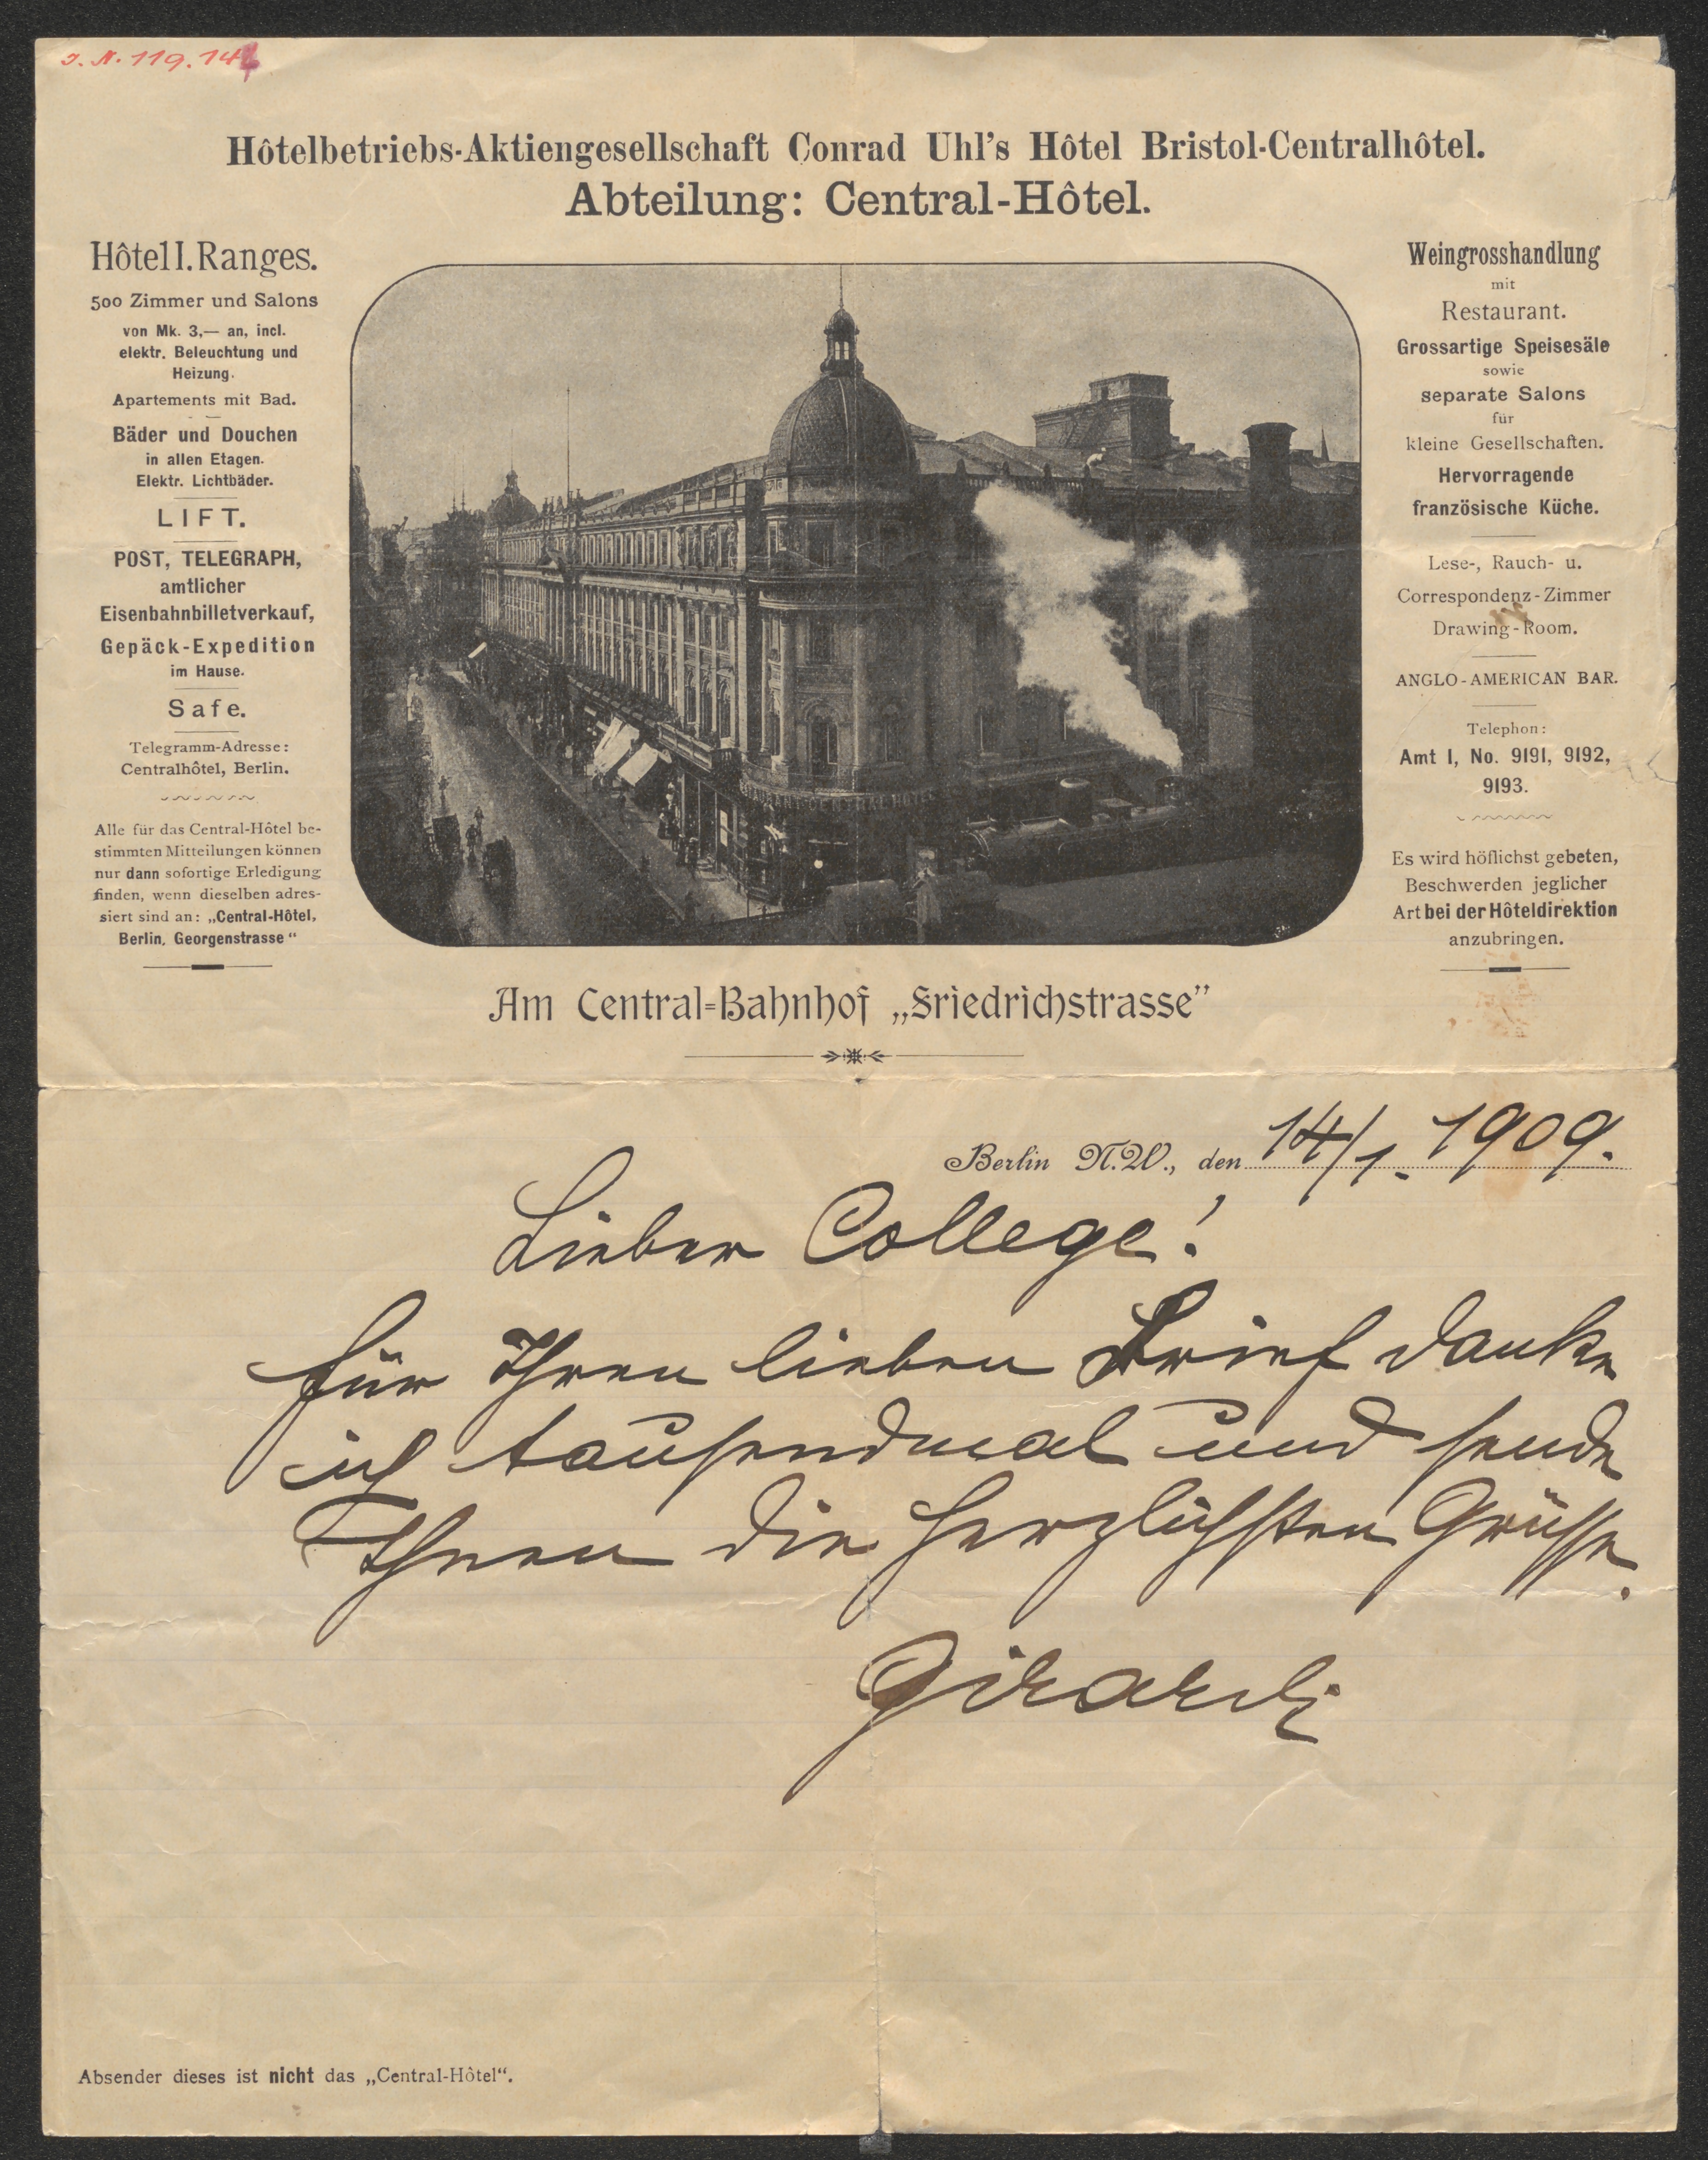 J. N. 119.14
Hôtelbetriebs-Aktiengesellschaft Conrad Uhl's Hôtel Bristol-Centralhôtel.
Abteilung: Central-Hôtel.
Hôtel I. Ranges.
500 Zimmer und Salons
von Mk. 3,— an, incl.
elektr. Beleuchtung und
Heizung.
Apartements mit Bad.
Bäder und Douchen
in allen Etagen.
Elektr. Lichtbäder.
LIFT.
POST, TELEGRAPH,
amtlicher
Eisenbahnbilletverkauf,
Gepäck-Expedition
im Hause.
Safe.
Telegramm-Adresse:
Centralhôtel, Berlin.
Alle für das Central-Hôtel be-
stimmten Mitteilungen können
nur dann sofortige Erledigung
finden, wenn dieselben adres-
siert sind an: „Central-Hôtel,
Berlin, Georgenstrasse“
RESTAURANT CENTRAL HOTEL
Weingrosshandlung
mit
Restaurant.
Grossartige Speisesäle
sowie
separate Salons
für
kleine Gesellschaften.
Hervorragende
französische Küche.
Lese-, Rauch- u.
Correspondenz-Zimmer
Drawing-Room.
ANGLO-AMERICAN BAR.
Telephon:
Amt I, No. 9191, 9192,
9193.
Es wird höflichst gebeten,
Beschwerden jeglicher
Art bei der Hôteldirektion
anzubringen.
Am Central-Bahnhof „Friedrichstrasse”
Berlin N.W., den 14/1. 1909.
Lieber College!
für Ihren lieben Brief danke
ich tausendmal und sende
Ihnen die herzlichsten Grüsse.
Girardi
Absender dieses ist nicht das „Central-Hôtel“.